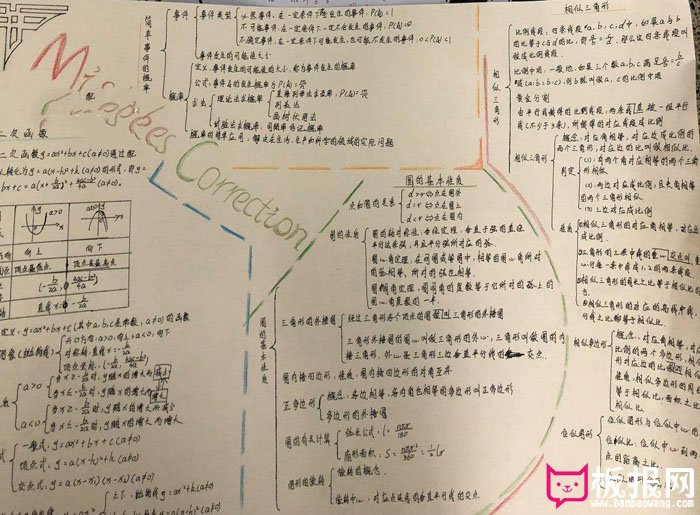 简单事件的概率
事件
事件类型
必然事件:在一定条件下一定发生的事件,P(A)=1
不可能事件:在一定条件下一定不会发生的事件,P(A)=0
不确定事件:在一定条件下可能发生,也可能不发生的事件,0<P(A)<1
事件发生的可能性大小
概率
定义:事件发生的可能性的大小,称为事件发生的概率
公式:事件A的发生概率为P(A)=
方法
理论法求概率
直接列举法求概率,P(A)=
列表法
画树状图法
试验法求概率:用频率估计概率
概率的简单应用:解决在生活、生产和科学的领域的实际问题
Mistakes Correction
二次函数
二次函数y=ax²+bx+c(a≠0)通过配
y=a(x-h)²+k(a≠0)的形式,即y=
bx+c=a(x+b/2a)²+(4ac-b²)/4a。
a>0
a<0
向上
向下
顶点是最低点
顶点是最高点
(-b/2a, (4ac-b²)/4a)
直线x=-b/2a
定义:y=ax²+bx+c(其中a,b,c是常数,a≠0)的函数
图像(抛物线)
开口方向:a>0,向上;a<0,向下
对称轴:直线x=-b/2a
顶点坐标:(-b/2a, (4ac-b²)/4a)
a>0
当x≤-b/2a时,y随x的增大而减小
当x≥-b/2a时,y随x的增大而增大
a<0
当x≥-b/2a时,y随x的增大而减小
当x≤-b/2a时,y随x的增大而增大
一般式:y=ax²+bx+c(a≠0)
顶点式:y=a(x-h)²+k(a≠0)
交点式:y=a(x-x₁)(x-x₂)(a≠0)
上下:抛物线y=ax²+k(a≠0)
圆的基本性质
圆的基本性质
点和圆的关系
d>r⇔点在圆外
d=r⇔点在圆上
d<r⇔点在圆内
圆的性质
圆的轴对称性:垂径定理:垂直于弦的直径
平分这条弦,并且平分弦所对的弧。
圆心角定理:在同圆或等圆中,相等的圆心角所对
的弦相等,所对的弧也相等。
圆周角定理:圆周角的度数等于它所对的弧上的
圆心角度数的一半。
三角形的外接圆
经过三角形各个顶点的圆叫三角形外接圆
三角形外接圆的圆心叫做三角形的外心,三角形叫做圆的内
接三角形,外心是三角形三边垂直平分线的交点。
圆内接四边形:性质:圆内接四边形的对角互补
正多边形
概念:各边相等,各内角也相等的多边形叫正多边形
多边形的外接圆
圆的有关计算
弧长公式:l=nπr/180
扇形面积:S=nπr²/360=½lr
图形的旋转
旋转的概念。
旋转中心:对应点连线的垂直平分线的交点。
相似三角形
相似三角形
比例线段:四条线段a,b,c,d中,如果a,b
的比等于c与d的比,即a/b=c/d,那么这四条线段叫
做成比例线段
比例中项:一般地,如果三个数a,b,c满足a/b=b/c
或(a:b=b:c),则b就叫做a,c的比例中项
黄金分割
由平行线截得的比例线段:两条直线被一组平行
线(不少于3条)所截,所截得的对应线段成比例
相似三角形
概念:对应角相等,对应边成比例的
两个三角形,对应边的比叫做相似比。
判定
(1).有两个角对应相等的两个三角
形相似。
(2).两边对应成比例,且夹角相等
的两个三角形相似
(3).三边对应成比例
性质
相似三角形的对应角相等,对应边
成比例。
相似三角形的周长之比等于相似比,
相似三角形的对应的高线,中线,角平
分线之比都等于相似比。
相似多边形
概念:对应角相等,对应边成
比例的两个多边形,相似多边
形对应边的比叫做相似比
性质:相似多边形的周长之比
等于相似比,面积之比
位似图形
位似图形与位似中心
位似比:位似中心到两
点的距离之比。
板报网
www.banbaowang.com